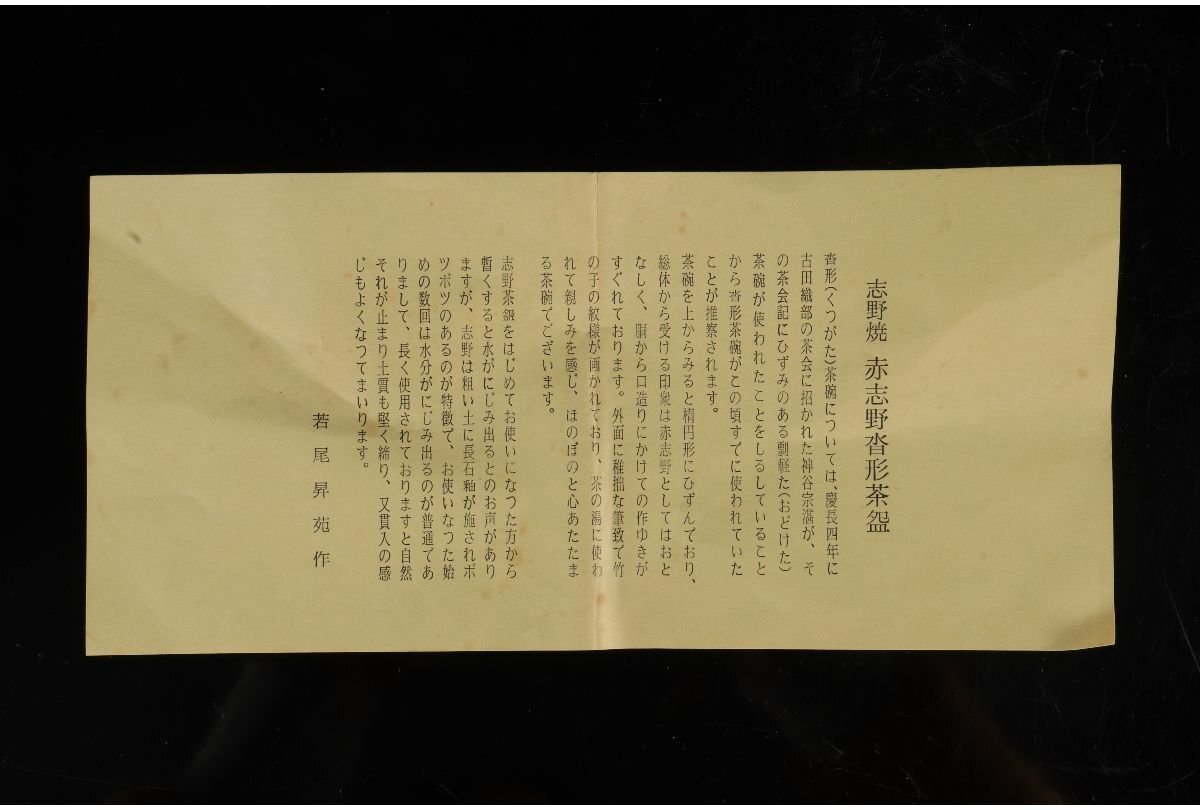 志野焼 赤志野沓形茶盌
沓形(くつがた)茶碗については、慶長四年に
古田織部の茶会に招かれた神谷宗湛が、そ
の茶会記にひずみのある剽軽た(おどけた)
茶碗が使われたことをしるしていること
から沓形茶碗がこの頃すでに使われていた
ことが推察されます。
茶碗を上からみると楕円形にひずんでおり、
総体から受ける印象は赤志野としてはおと
なしく、胴から口造りにかけての作ゆきが
すぐれております。外面に稚拙な筆致で竹
の子の紋様が画かれており、茶の湯に使わ
れて親しみを感じ、ほのぼのと心あたたま
る茶碗でございます。
志野茶盌をはじめてお使いになつた方から
暫くすると水がにじみ出るとのお声があり
ますが、志野は粗い土に長石釉が施されポ
ツポツのあるのが特徴で、お使いなつた始
めの数回は水分がにじみ出るのが普通であ
りまして、長く使用されておりますと自然
それが止まり土質も堅く締り、又貫入の感
じもよくなつてまいります。
若尾昇苑作